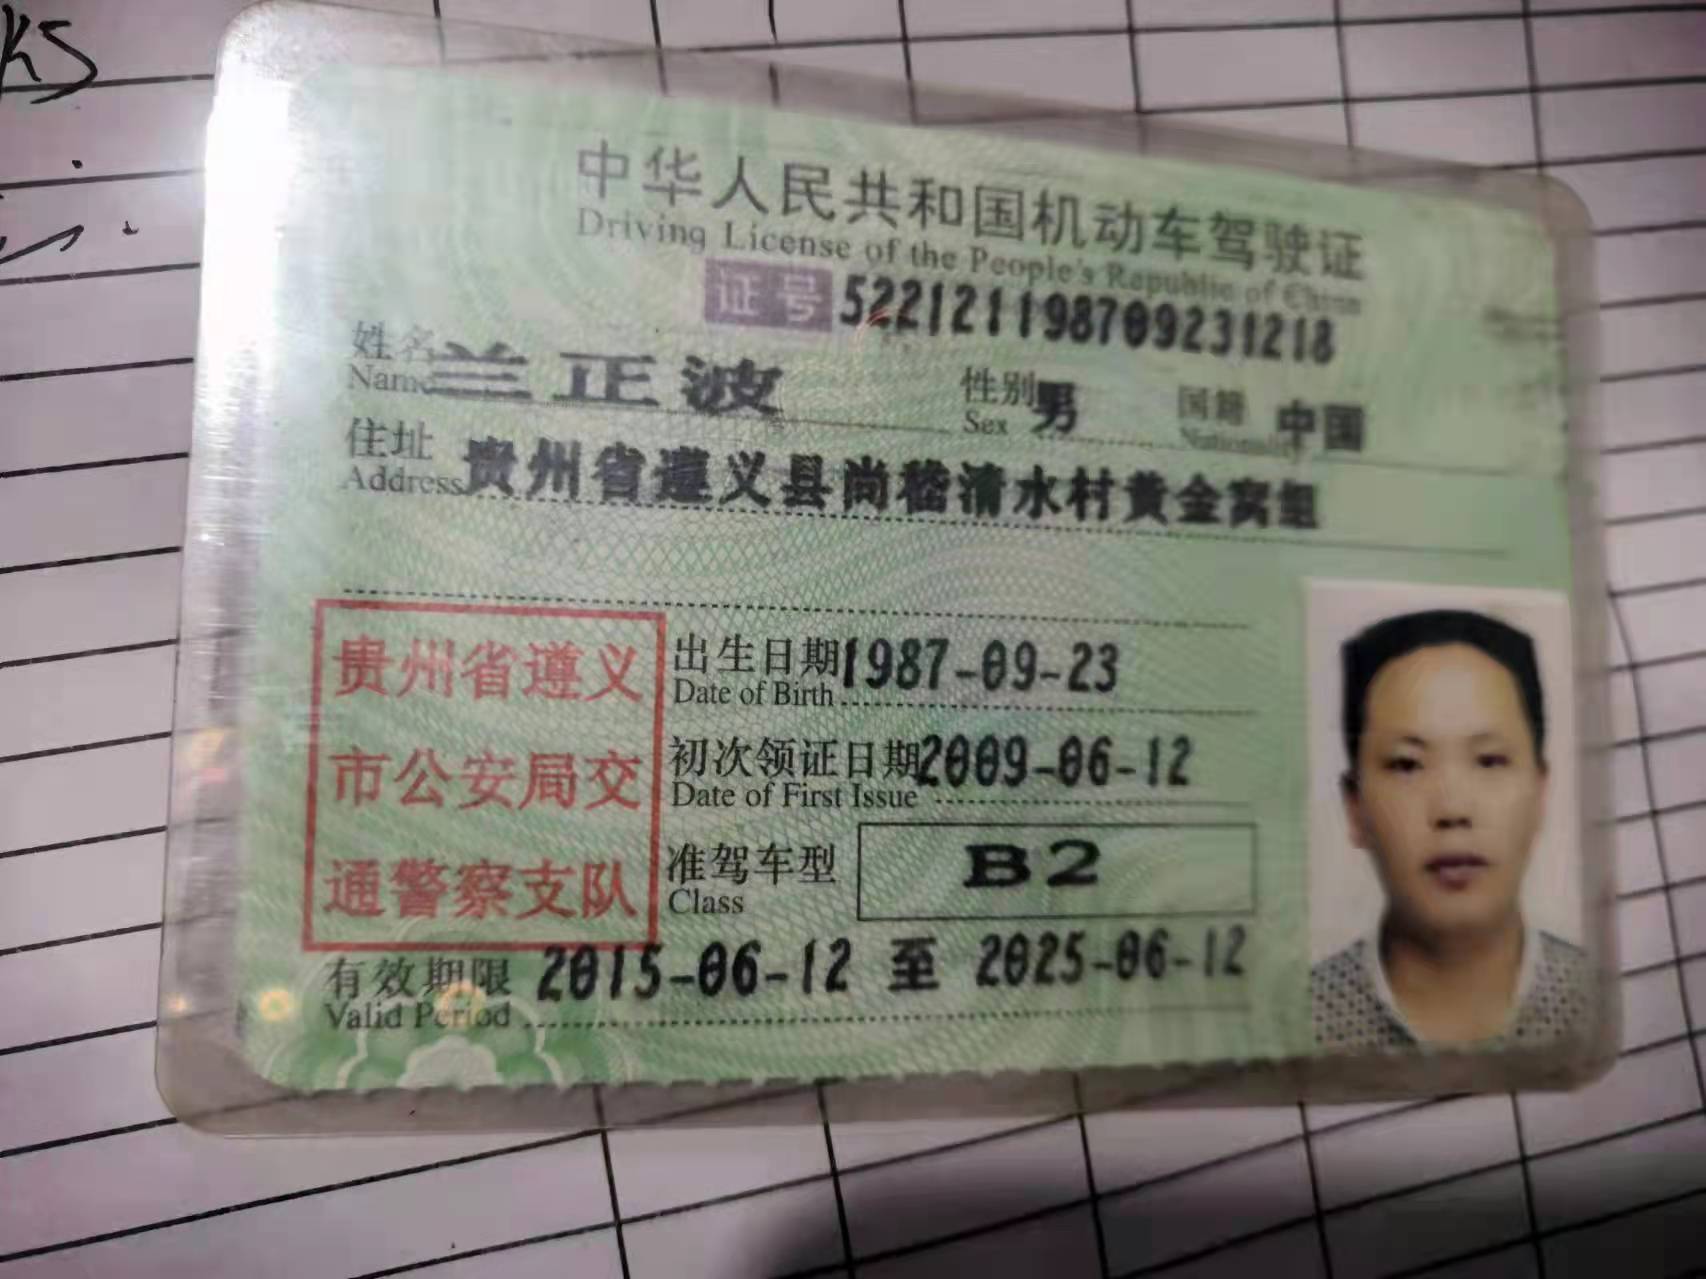 中华人民共和国机动车驾驶证
Driving License of the People's Republic of China
证号 522121198709231218
姓名 兰正波 性别 男 国籍 中国
Name Sex Nationality
住址 贵州省遵义县尚嵇清水村黄金窝组
Address
贵州省遵义
市公安局交
通警察支队
出生日期 1987-09-23
Date of Birth
初次领证日期 2009-06-12
Date of First Issue
准驾车型 B2
Class
有效期限 2015-06-12 至 2025-06-12
Valid Period